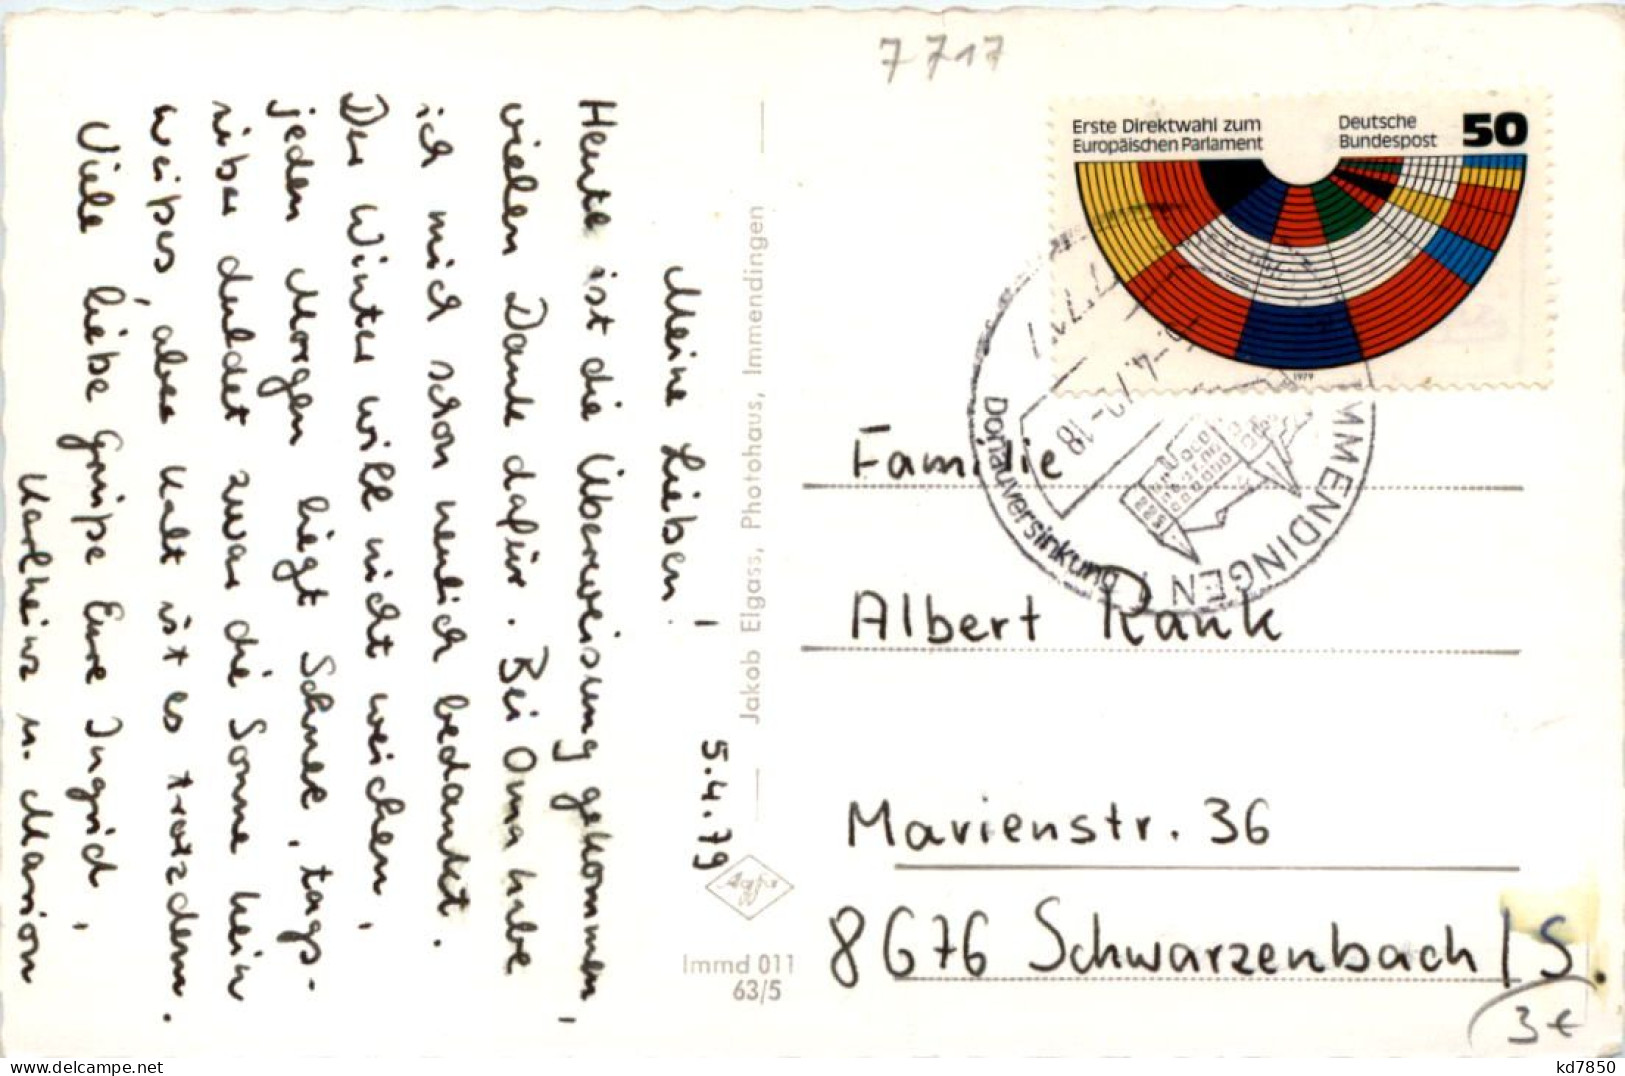 7717
Erste Direktwahl zum
Europäischen Parlament
Deutsche
Bundespost
50
1979
IMMENDINGEN 1
Donauversinkung
-4.79-18
5.4.79
Meine Lieben!
Heute ist die Überweisung gekommen,
vielen Dank dafür. Bei Oma habe
ich mich schon neulich bedankt.
Der Winter will nicht weichen,
jeden Morgen liegt Schnee, tags-
über duldet zwar die Sonne kein
weißes, aber kalt ist es trotzdem.
Viele liebe Grüße Eure Ingrid,
Karlheinz u. Marion
Jakob Elgass, Photohaus, Immendingen
Agfa
Immd 011
63/5
Familie
Albert Rank
Marienstr. 36
8676 Schwarzenbach/S.
3€
delcampe.net
kd7850